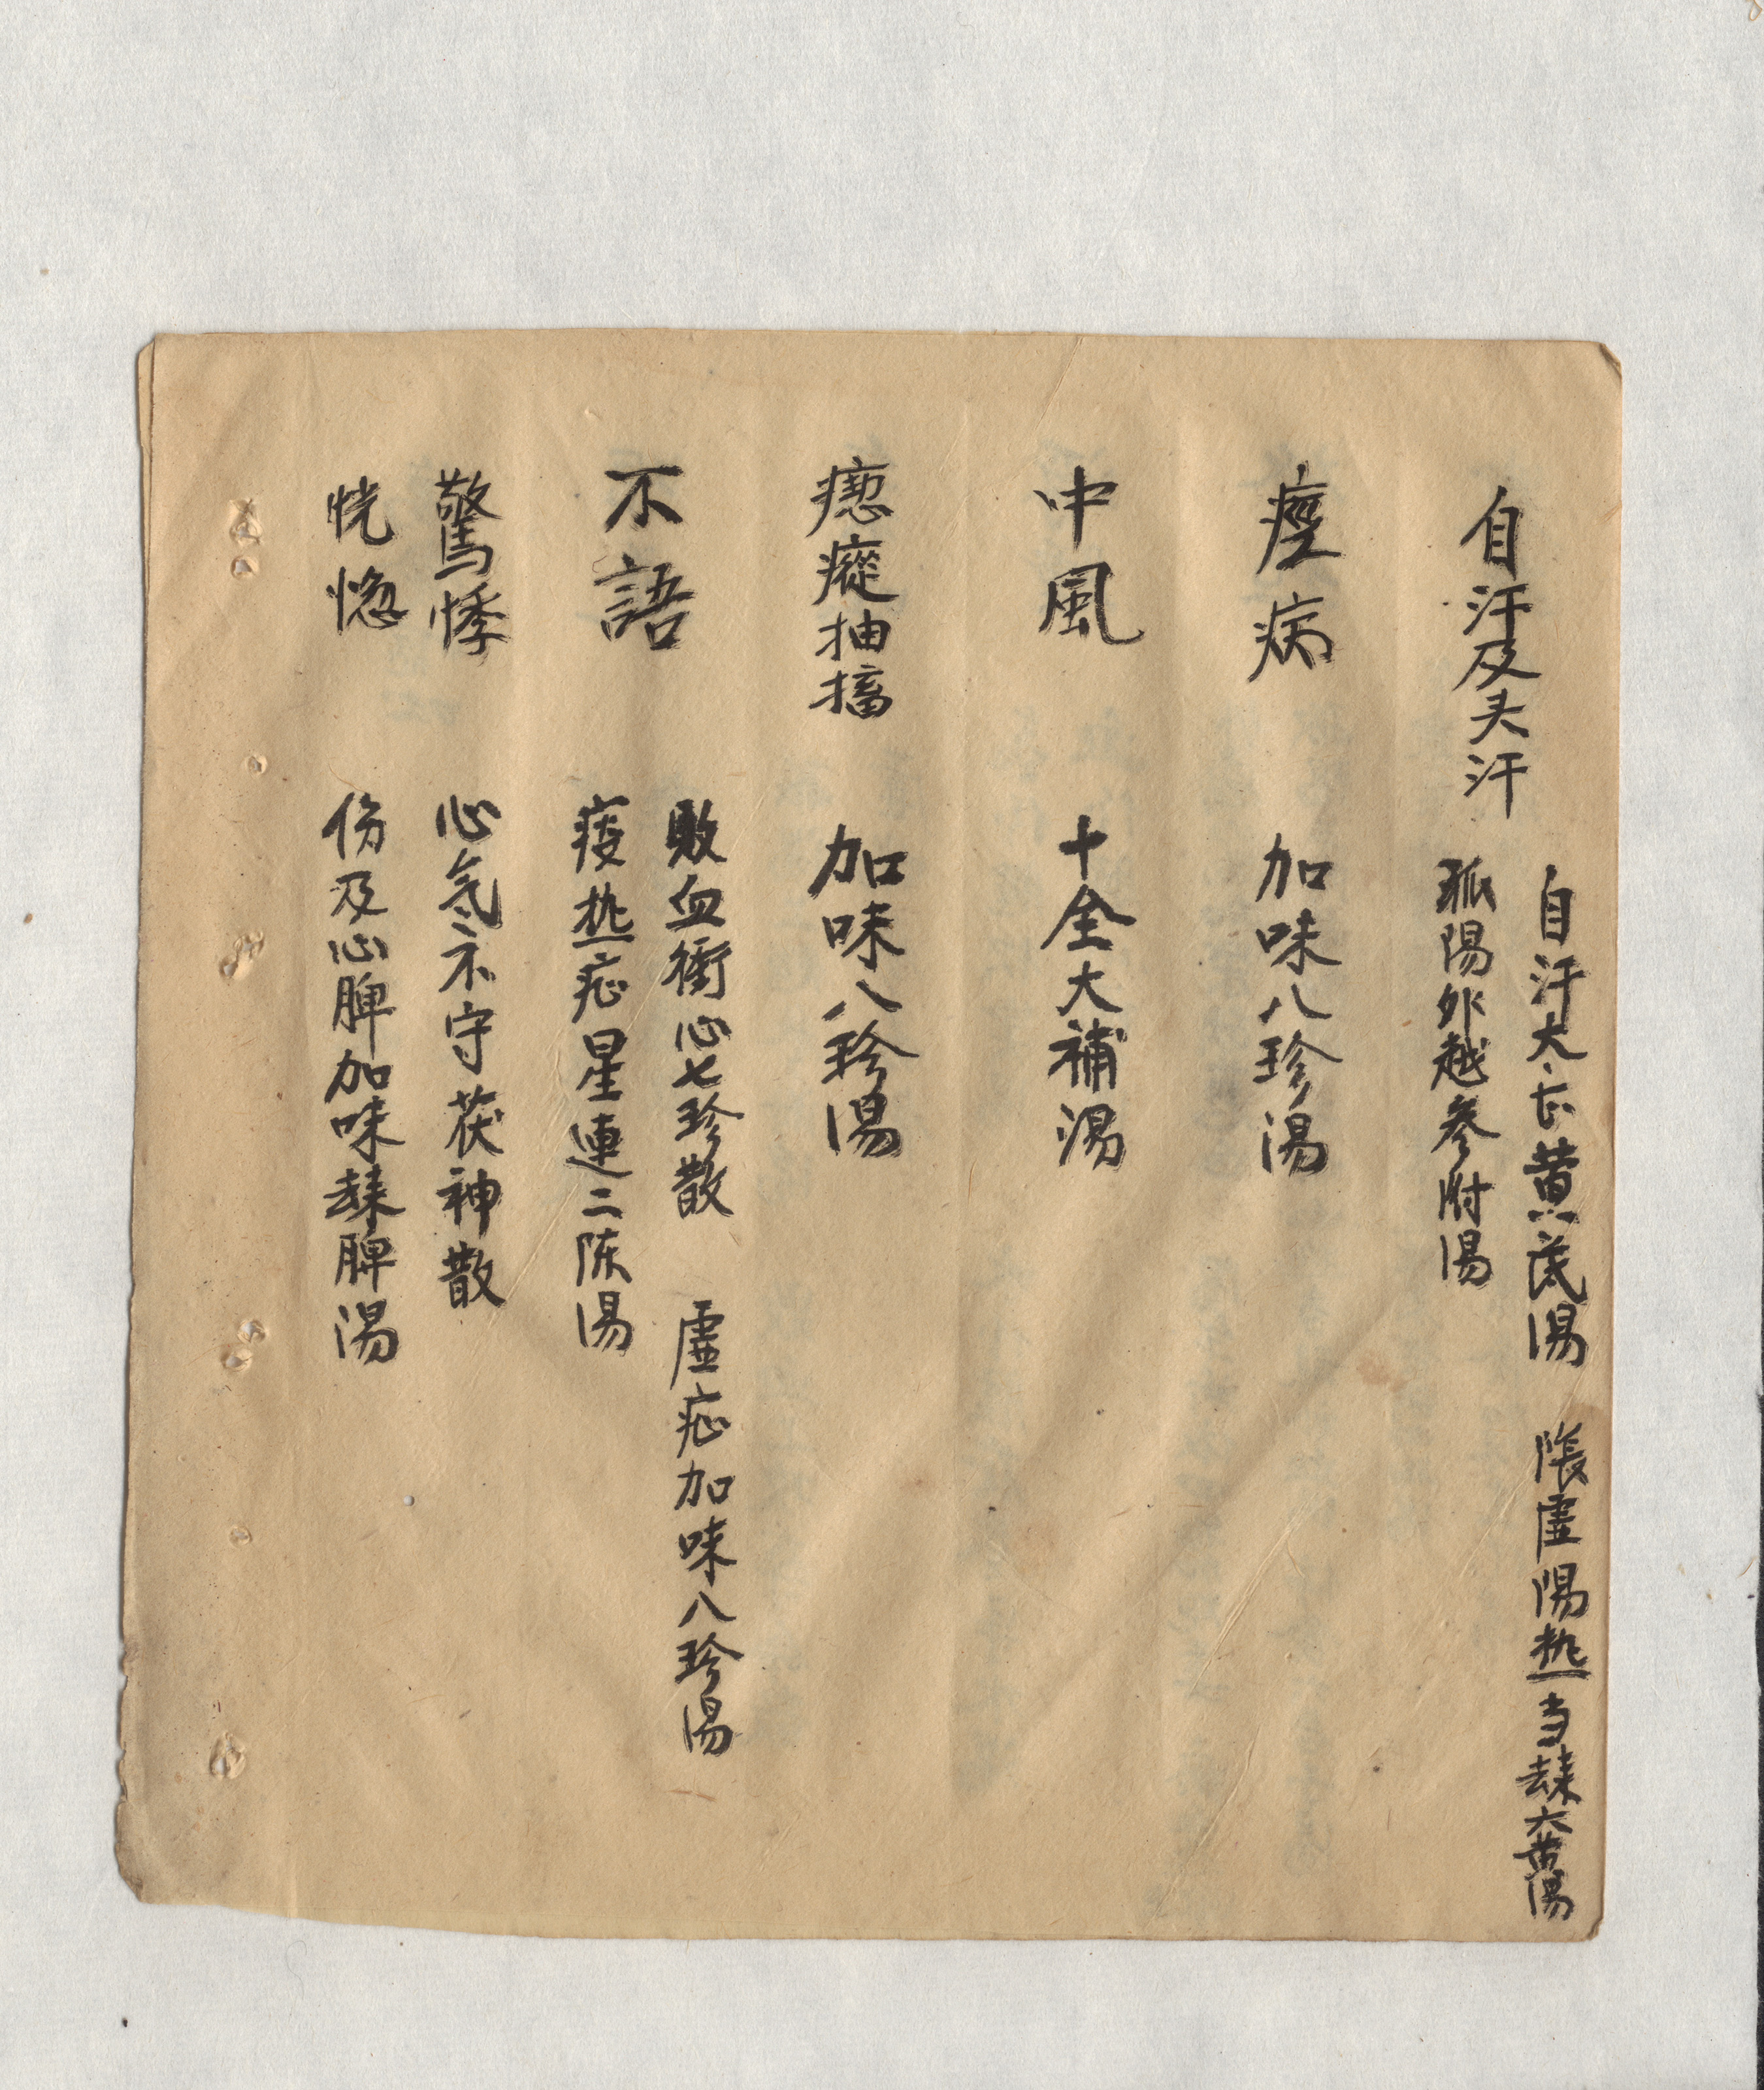 自汗及头汗
自汗大 黄芪湯 虛陽热当 六黄湯
孤陽外越参附湯
痙病 加味八珍湯
中風 十全大補湯
瘛瘲抽搐 加味八珍湯
不語
敗血衝心七珍散 虛症加味八珍湯
痰热症星連二陈湯
驚悸 心氣不守茯神散
恍惚 伤及心脾加味 脾湯